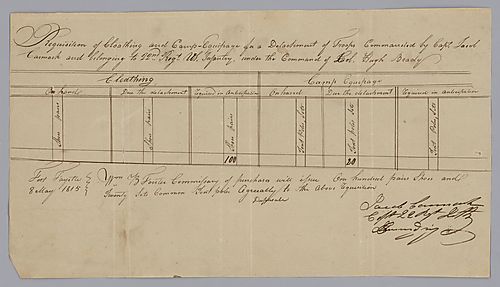 Requisition of Cloathing and Camp-Equipage for a Detachment of Troops Commanded by Capt. Jacob
Carmack and belonging to 22nd Regt. US. Infantry, under the Command of Col. Hugh Brady
Cloathing Camp Equipage
On hand Due the detachment Required in Anticipation On hand Due the detachment Required in Anticipation
Shoe pairs Shoe pairs Shoe pairs Tent Poles Sets Tent Poles Sets Tent Poles Sets
100 20
Fort Fayette
8 May 1815
Commissary of purchases will issue One hundred pairs Shoes and
Twenty Sets Common Tent poles Agreeably to the Above requisition
Jacob Carmack
Capt 22 Regt